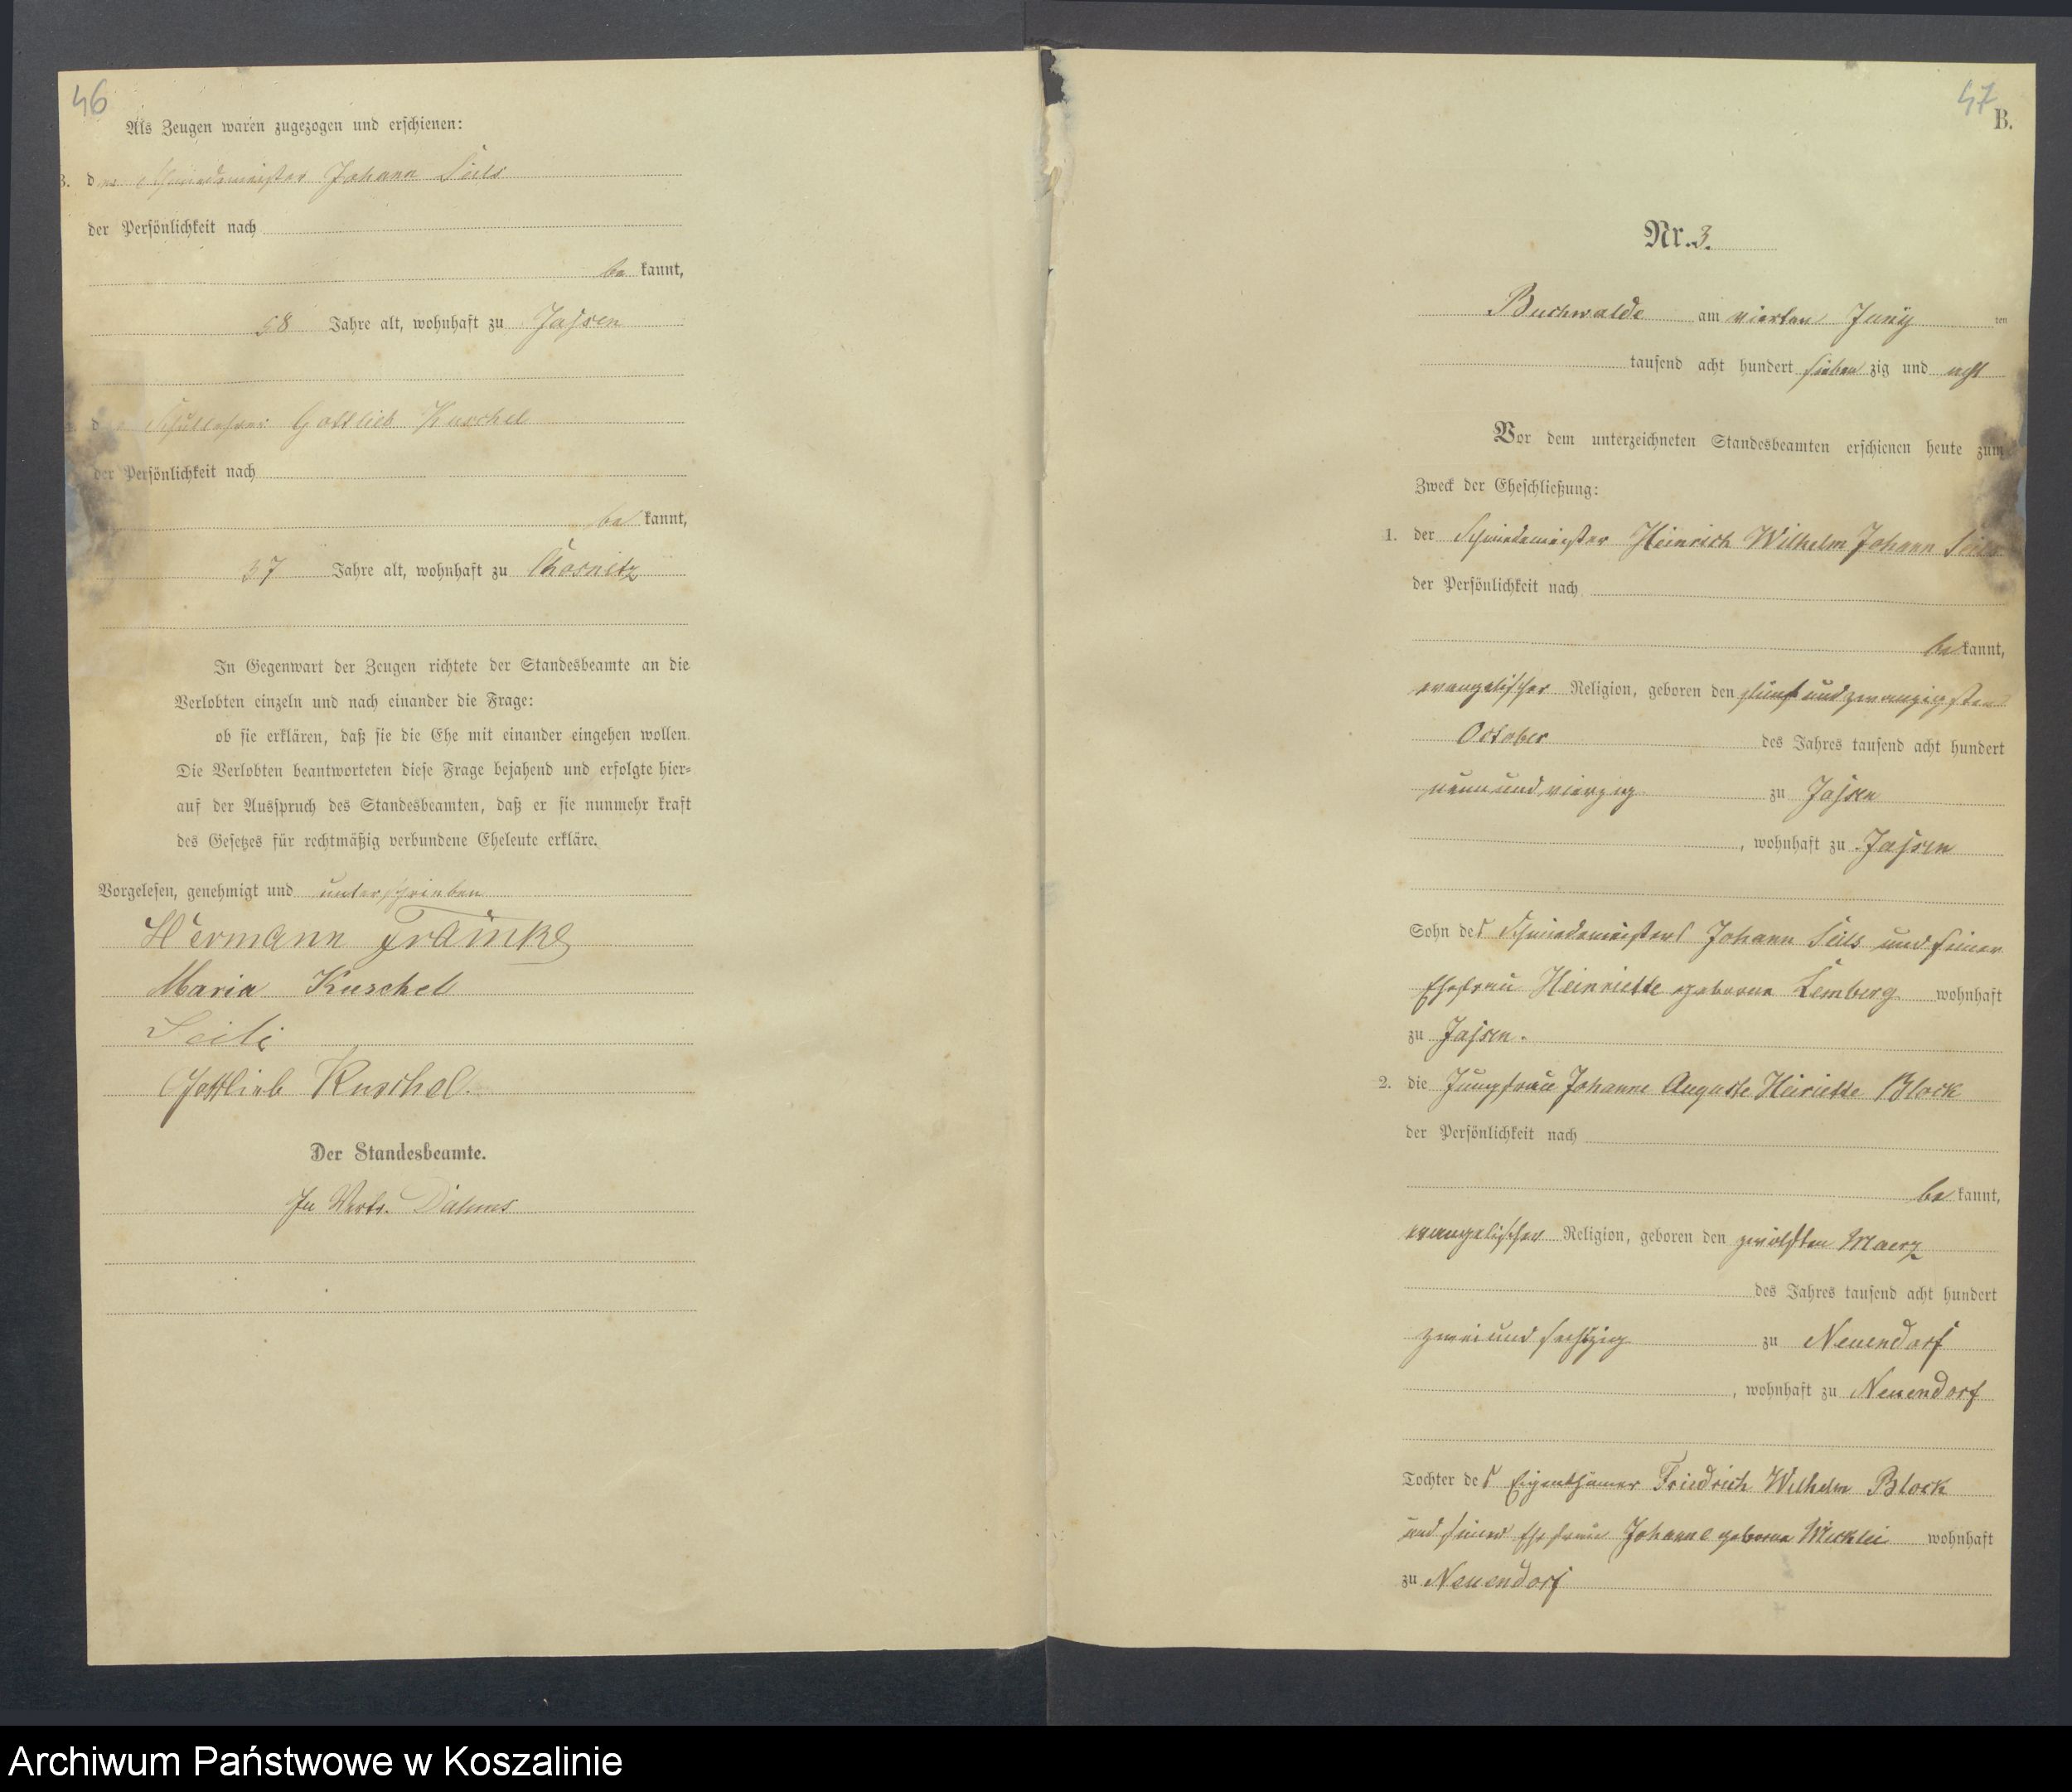 46
Als Zeugen waren zugezogen und erschienen:
3. den Schmiedemeister Johann Seils
der Persönlichkeit nach
be kannt,
58 Jahre alt, wohnhaft zu Jassen
Schullehrer Gottlieb Kuschel
der Persönlichkeit nach
be kannt,
37 Jahre alt, wohnhaft zu
In Gegenwart der Zeugen richtete der Standesbeamte an die
Verlobten einzeln und nach einander die Frage:
ob sie erklären, daß sie die Ehe mit einander eingehen wollen.
Die Verlobten beantworteten diese Frage bejahend und erfolgte hier-
auf der Ausspruch des Standesbeamten, daß er sie nunmehr kraft
des Gesetzes für rechtmäßig verbundene Eheleute erkläre.
Vorgelesen, genehmigt und unterschrieben
Hermann
Maria Kuschel
Seils
Gottlieb Kuschel.
Der Standesbeamte.
In Vertr. Dahms
47
B.
Nr. 3.
Buchwalde am vierten Juny ten
tausend acht hundert sieben zig und acht
Vor dem unterzeichneten Standesbeamten erschienen heute zum
Zweck der Eheschließung:
1. der Schmiedemeister Heinrich Wilhelm Johann Seils
der Persönlichkeit nach
be kannt,
evangelischer Religion, geboren den fünf und zwanzigsten
October des Jahres tausend acht hundert
neun und vierzig zu Jassen
, wohnhaft zu Jassen
Sohn des Schmiedemeisters Johann Seils und seiner
Ehefrau Heinriette geborne Lemberg wohnhaft
zu Jassen.
2. die Jungfrau Johanne Auguste Heiriette Block
der Persönlichkeit nach
be kannt,
evangelischer Religion, geboren den zwölften Maerz
des Jahres tausend acht hundert
zwei und sechszig zu Neuendorf
, wohnhaft zu Neuendorf
Tochter des Eigenthümer Friedrich Wilhelm Block
und seiner Ehefrau Johanne geborne wohnhaft
zu Neuendorf
Archiwum Państwowe w Koszalinie